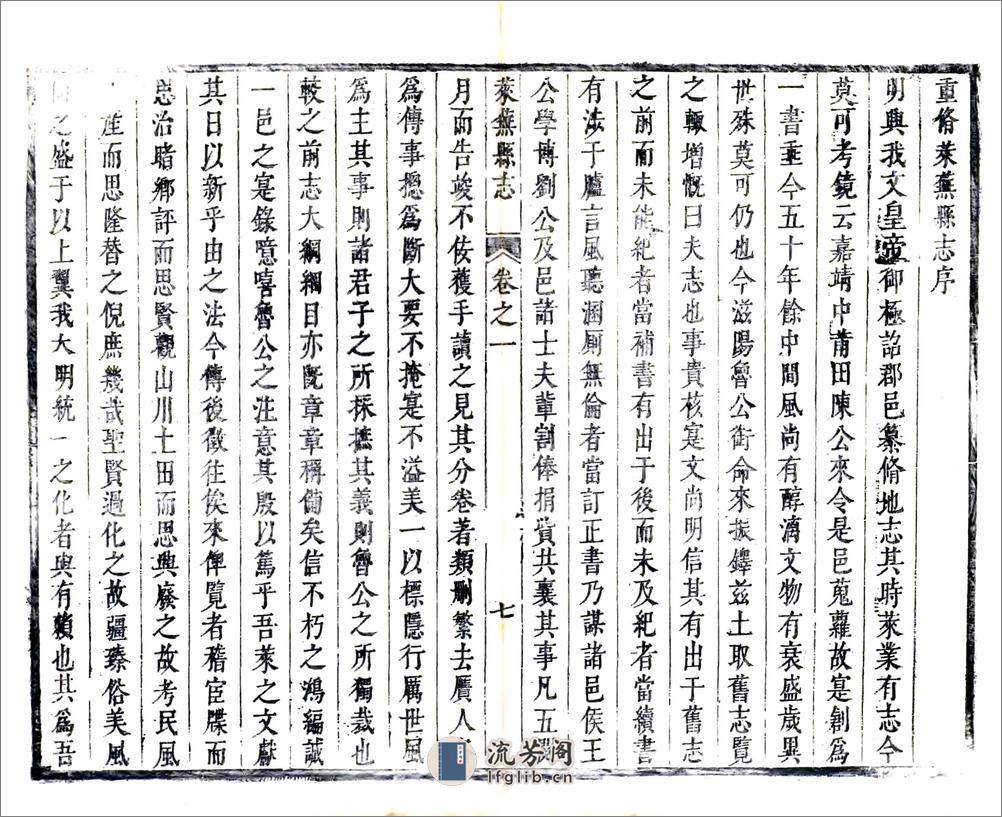 重脩萊蕪縣志序
明興我文皇帝御極詔郡邑纂脩地志其時萊業有志今
莫可考鏡云嘉靖中莆田陳公來令是邑蒐蘿故寔創爲
一書垂今五十年餘中間風尚有醇漓文物有衰盛歲異
世殊莫可仍也今滋陽魯公銜命來振鐸茲土取舊志覽
之輙增慨曰夫志也事貴核寔文尚明信其有出于舊志
之前而未能紀者當補書有出于後而未及紀者當續書
有涉于臚言風聽溷厠無倫者當訂正書乃謀諸邑侯王
公學博劉公及邑諸士夫輩割俸捐貲共襄其事凡五
萊蕪縣志 卷之一 七
月而告竣不佞獲手讀之見其分卷著類刪繁去贋人
爲傳事摠爲斷大要不掩寔不溢美一以標隱行厲世風
爲主其事則諸君子之所採摭其義則魯公之所獨裁也
較之前志大綱綱目亦既章章稱備矣信不朽之鴻編誠
一邑之寔錄噫嘻魯公之注意其殷以篤乎吾萊之文獻
其日以新乎由之法今傳後徵往俟來俾覽者稽宦牒而
思治睹鄉評而思賢觀山川土田而思興廢之故考民風
產而思隆替之倪庶幾哉聖賢過化之故疆臻俗美風
之盛于以上翼我大明統一之化者與有賴也其爲吾
流芳阁
lfglib.cn